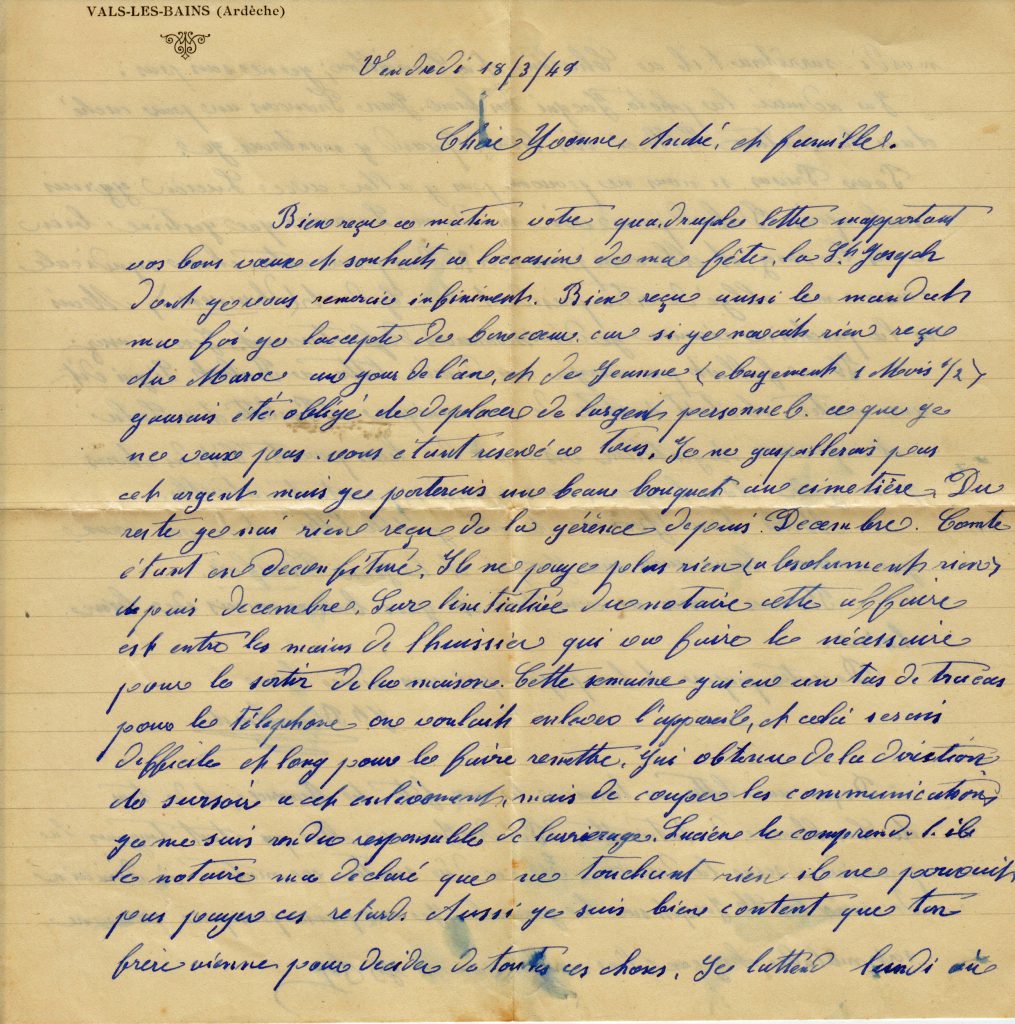 VALS-LES-BAINS (Ardèche)
Vendredi 18/3/49
Chère Yvonne, André, et famille.
Bien reçu ce matin votre quadruple lettre m'apportant
vos bons vœux et souhaits a l'occasion de ma fête, la St Joseph
dont je vous remercie infiniment. Bien reçu aussi le mandat
ma foi je l'accepte de bon cœur car si je navais rien reçu
du Maroc au jour de l'an, et de Jeanne (ebergement 1 Mois 1/2)
jaurais été obligé de deplacer de l'argent personnel. ce que je
ne veux pas. vous étant reservé a tous. Je ne gaspillerais pas
cet argent mais je porterais un beau bouquet au cimetière. Du
reste je n'ai rien reçu de la gérence depuis Decembre. Comte
étant en deconfiture. Il ne paye plus rien (absolument rien)
depuis decembre. Sur linitiative du notaire cette affaire
est entre les mains de l'huissier qui va faire le nécessaire
pour le sortir de la maison. Cette semaine j'ai eu un tas de tracas
pour le téléphone on voulait enlever l'appareil, et cela serais
difficile et long pour le faire remettre. J'ai obtenu de la direction
de sursoir a cet enlèvement, mais de couper les communications
je me suis rendu responsable de l'arriérage. Lucien le comprend-t-il
le notaire m'a déclaré que ne touchant rien il ne pouvait
pas payer ces retards Aussi je suis bien content que ton
frère vienne pour decider de toutes ces choses. Je l'attend lundi au